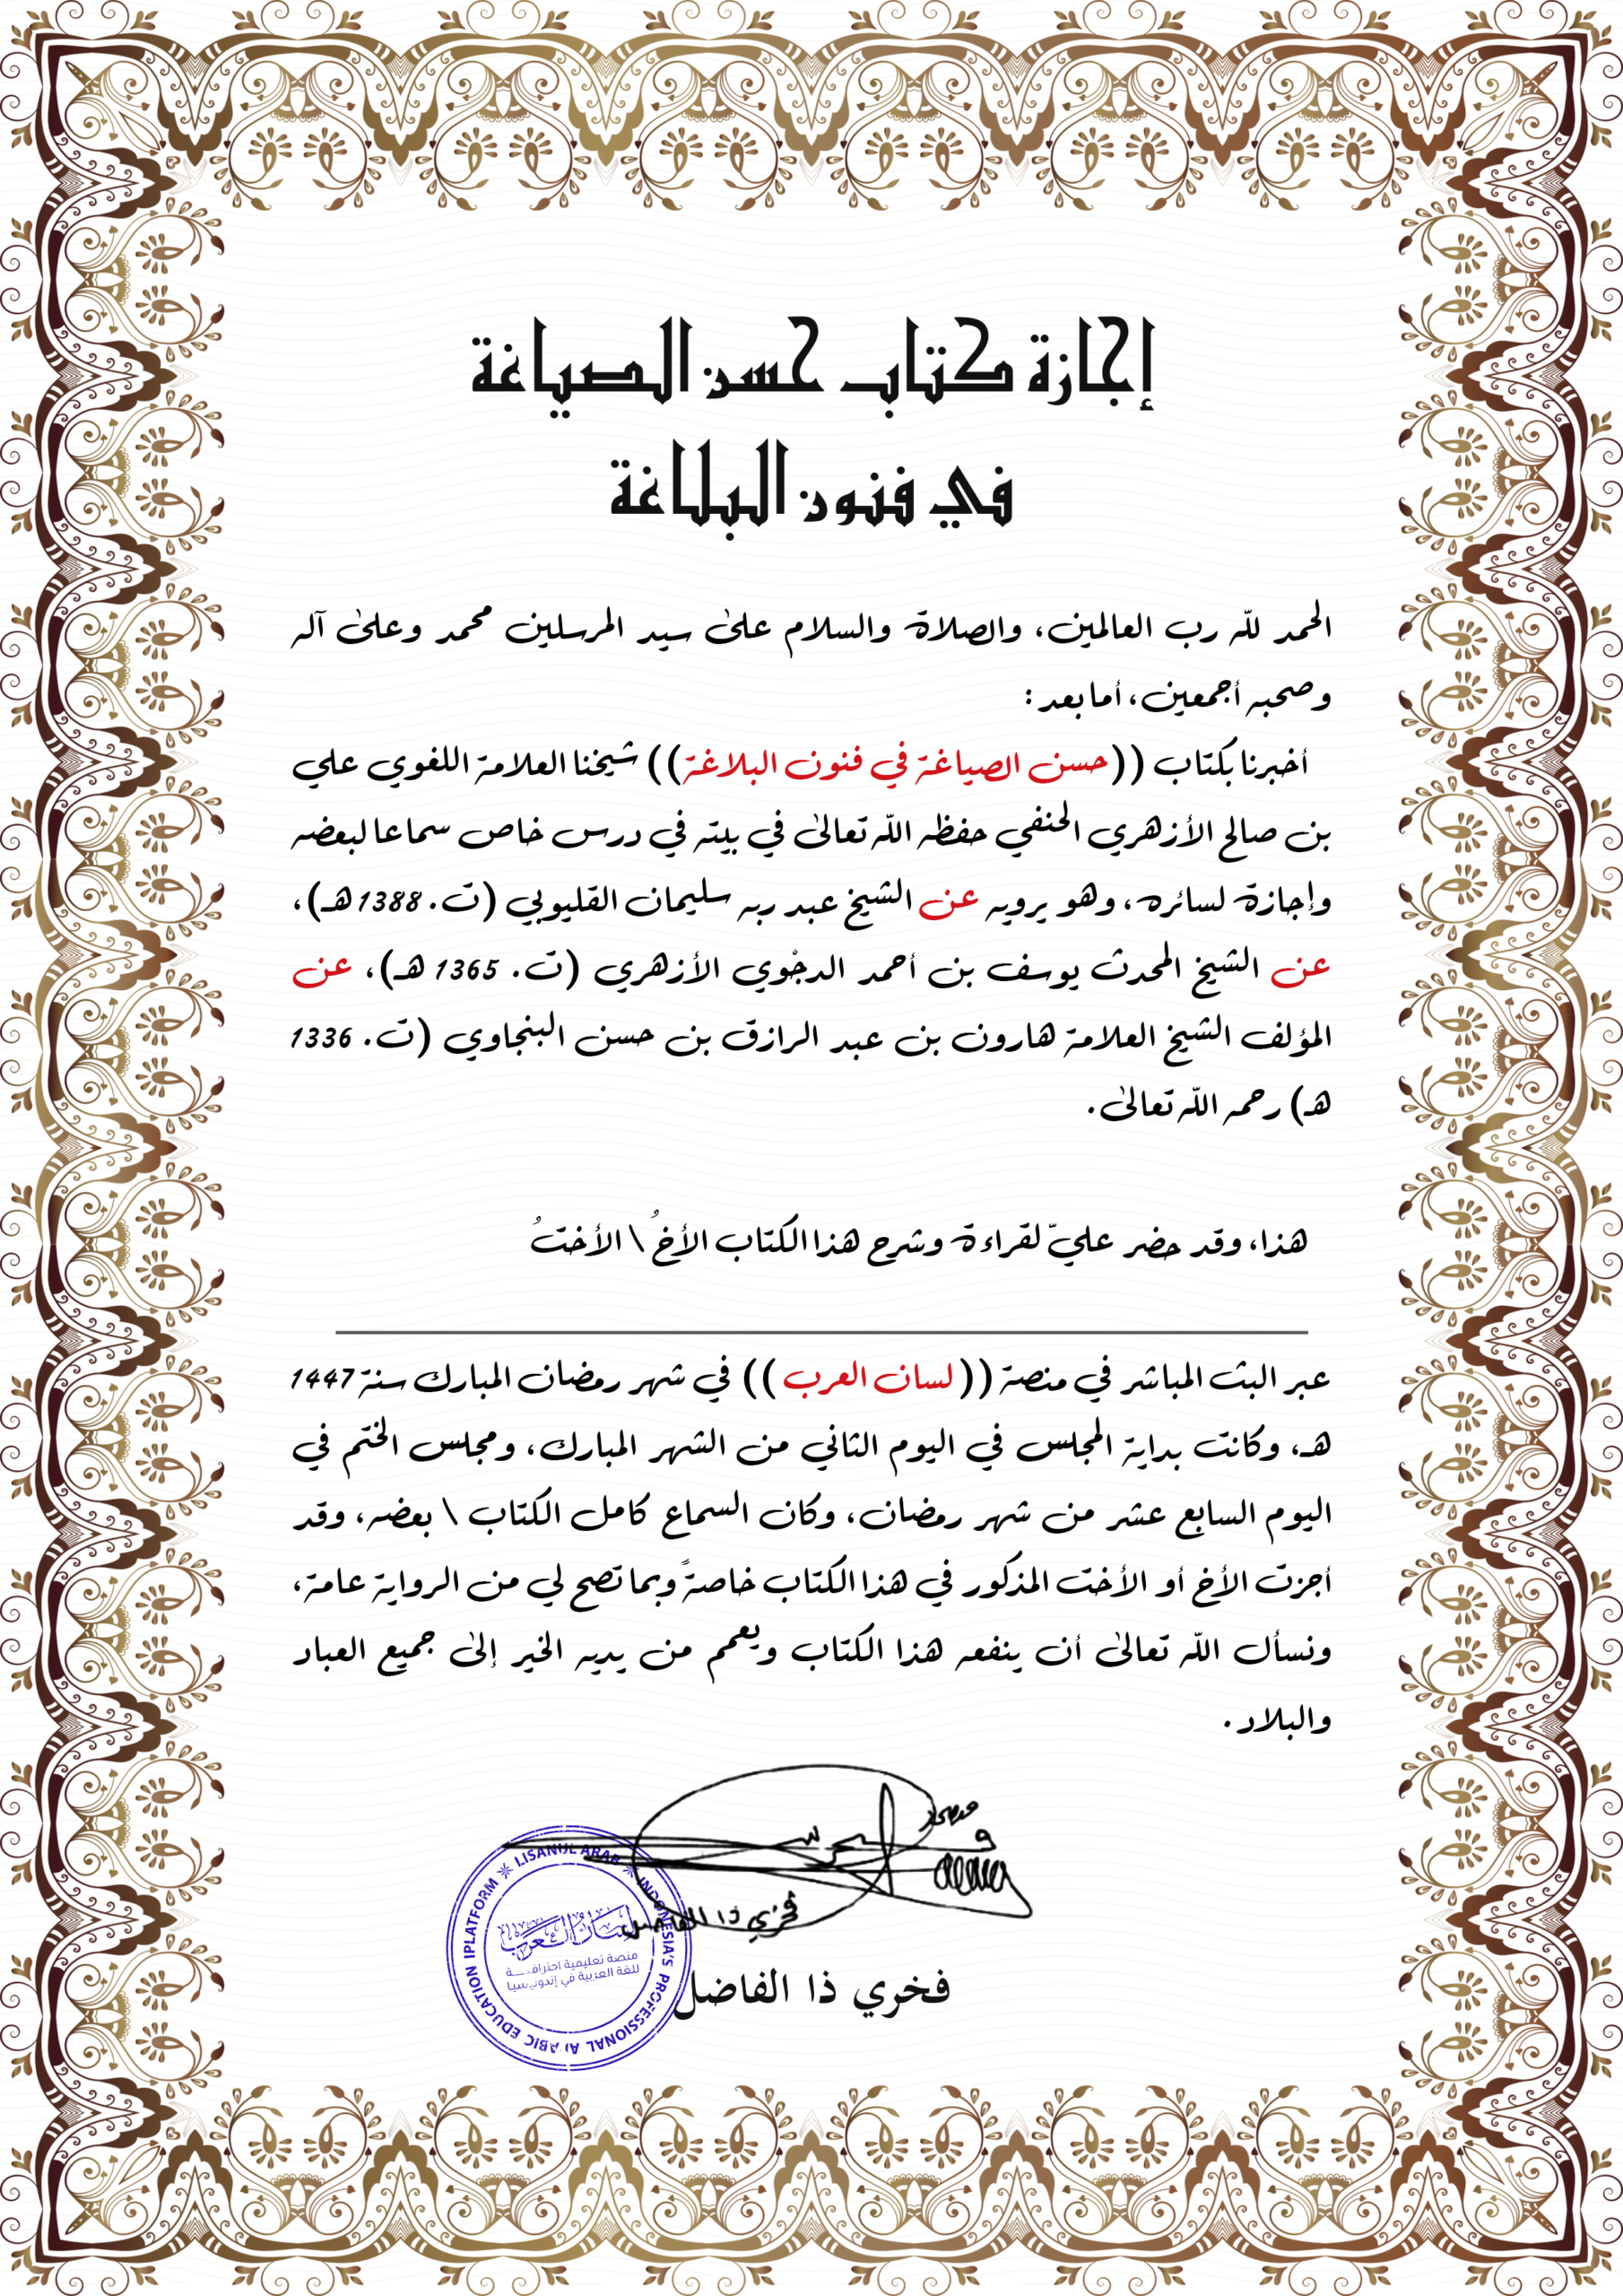 إجازة كتاب حسن الصياغة
في فنون البلاغة
الحمد للّه رب العالمين، والصلاة والسلام علىٰ سيد المرسلين محمد وعلىٰ آله
وصحبه أجمعين، أما بعد:
أخبرنا بكتاب ((حسن الصياغة في فنون البلاغة)) شيخنا العلامة اللغوي علي
بن صالح الأزهري الحنفي حفظه اللّه تعالىٰ في بيته في درس خاص سماعا لبعضه
وإجازة لسائره، وهو يرويه عن الشيخ عبد ربه سليمان القليوبي (ت. 1388هـ)،
عن الشيخ المحدث يوسف بن أحمد الدجْوي الأزهري (ت. 1365 هـ)، عن
المؤلف الشيخ العلامة هارون بن عبد الرازق بن حسن البنجاوي (ت. 1336
هـ) رحمه اللّه تعالىٰ.
هذا، وقد حضر عليّ لقراءة وشرح هذا الكتاب الأخُ \ الأختُ
عبر البث المباشر في منصة ((لسان العرب)) في شهر رمضان المبارك سنة 1447
هـ، وكانت بداية المجلس في اليوم الثاني من الشهر المبارك، ومجلس الختم في
اليوم السابع عشر من شهر رمضان، وكان السماع كامل الكتاب \ بعضه، وقد
أجزت الأخ أو الأخت المذكور في هذا الكتاب خاصةً وبما تصح لي من الرواية عامة،
ونسأل اللّه تعالىٰ أن ينفعه هذا الكتاب ويعمم من يديه الخير إلىٰ جميع العباد
والبلاد.
فخري ذا الفاضل
LISANUL ARAB
INDONESIA'S PROFESSIONAL ARABIC EDUCATION IPLATFORM
لسان العرب
منصة تعليمية احترافيـــة
للغة العربية في إندونيسيا
فخري ذا الفاضل